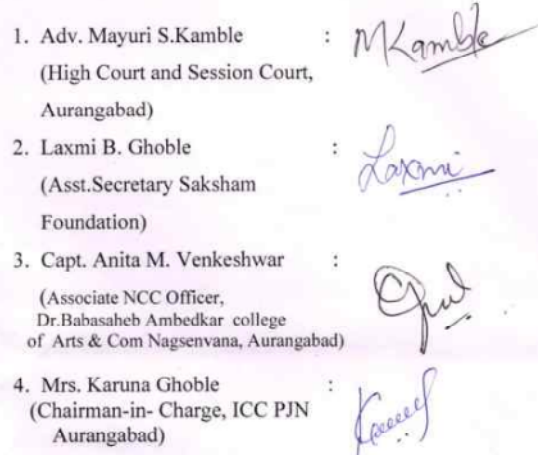 1. Adv. Mayuri S.Kamble : MKamble
(High Court and Session Court,
Aurangabad)
2. Laxmi B. Ghoble : Laxmi
(Asst.Secretary Saksham
Foundation)
3. Capt. Anita M. Venkeshwar :
(Associate NCC Officer,
Dr.Babasaheb Ambedkar college
of Arts & Com Nagsenvana, Aurangabad)
4. Mrs. Karuna Ghoble :
(Chairman-in- Charge, ICC PJN
Aurangabad)